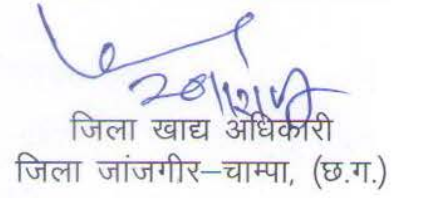 जिला खाद्य अधिकारी
जिला जांजगीर–चाम्पा, (छ.ग.)